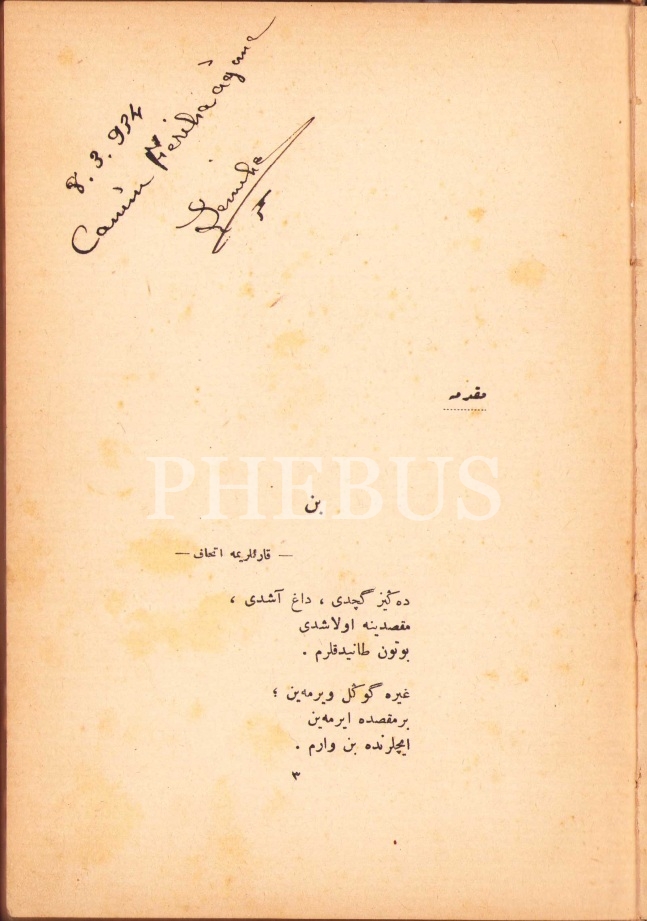 8.3.934
Canım
مقدمه
PHEBUS
بن
— قارئلریمه اتحاف —
دەکیز گچدی ، داغ آشدی ،
مقصدینه اولاشدی
بوتون طانیدقلرم .
غیره گوکل ویرمەین ؛
برمقصده ایرمەین
ایچلرنده بن وارم .
٣